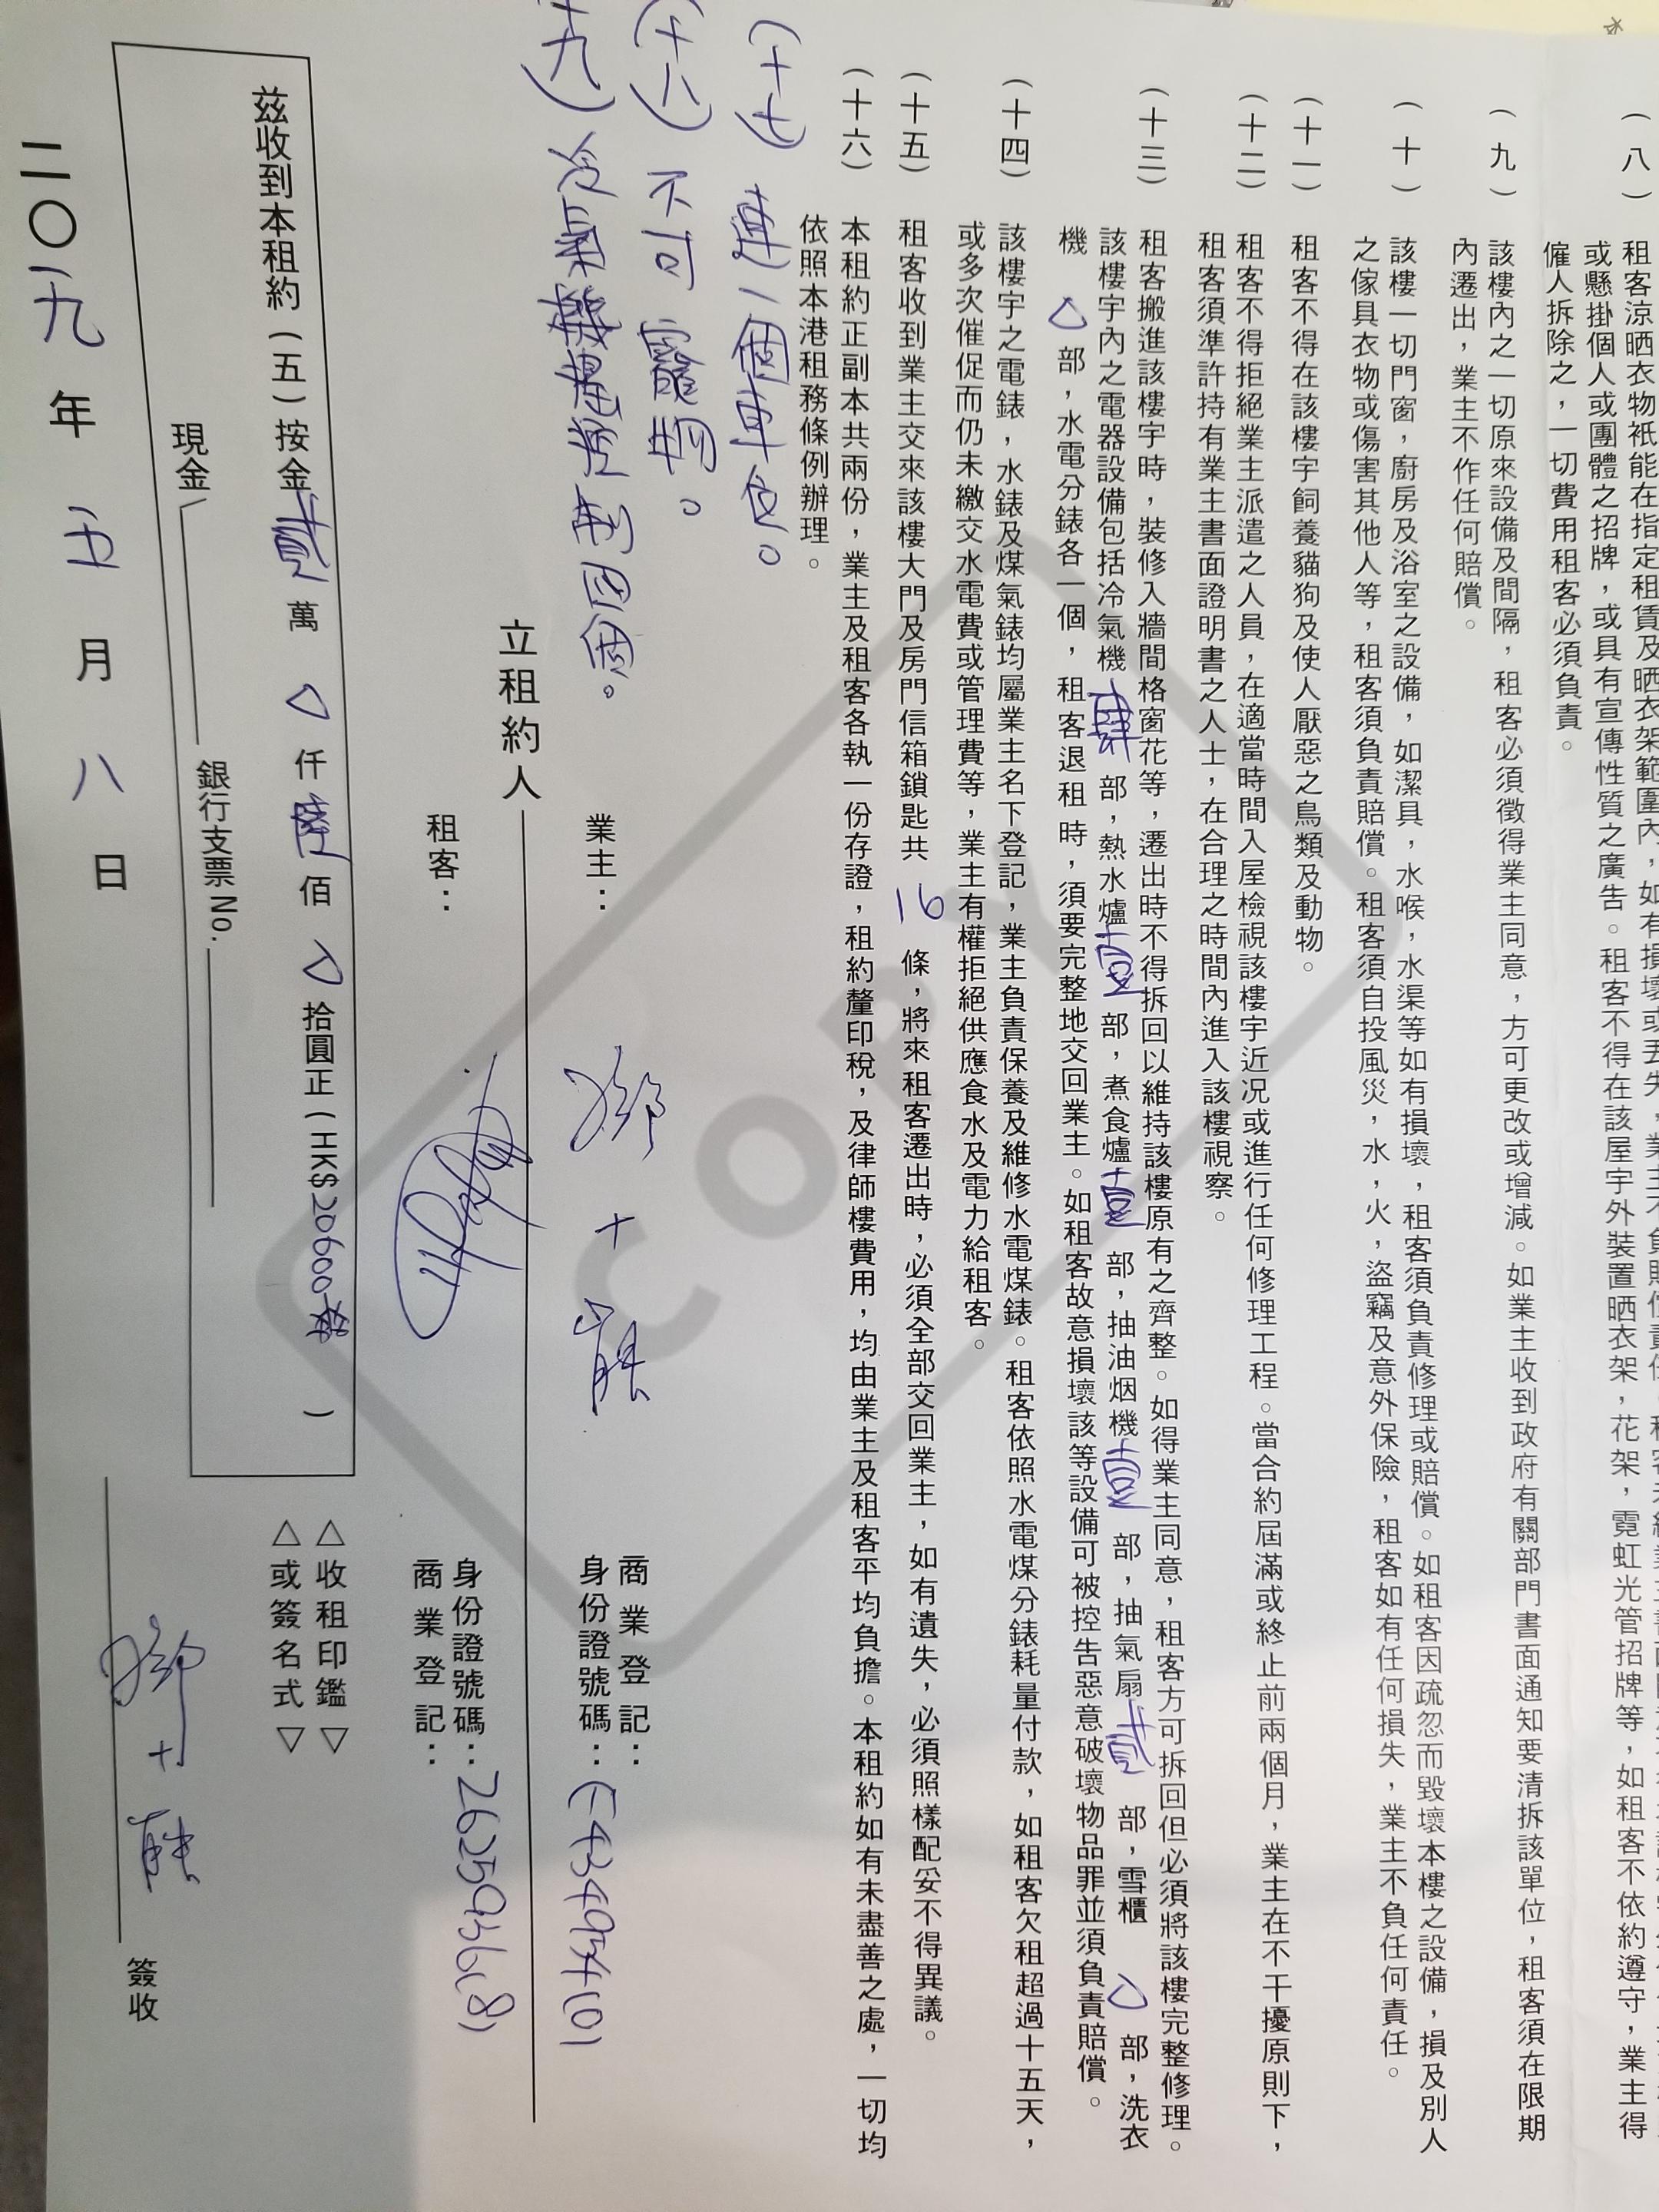 （八）
租客涼晒衣物衹能在指定租賃及晒衣架範圍內，如有損壞或丟失，業主不負賠償責任，租客未經業主書面同意不得
或懸掛個人或團體之招牌，或具有宣傳性質之廣告。租客不得在該屋宇外裝置晒衣架，花架，霓虹光管招牌等，如租客不依約遵守，業主得
僱人拆除之，一切費用租客必須負責。
（九）
該樓內之一切原來設備及間隔，租客必須徵得業主同意，方可更改或增減。如業主收到政府有關部門書面通知要清拆該單位，租客須在限期
內遷出，業主不作任何賠償。
（十）
該樓一切門窗，廚房及浴室之設備，如潔具，水喉，水渠等如有損壞，租客須負責修理或賠償。如租客因疏忽而毀壞本樓之設備，損及別人
之傢具衣物或傷害其他人等，租客須負責賠償。租客須自投風災，水，火，盜竊及意外保險，租客如有任何損失，業主不負任何責任。
（十一）
租客不得在該樓宇飼養貓狗及使人厭惡之鳥類及動物。
（十二）
租客不得拒絕業主派遣之人員，在適當時間入屋檢視該樓宇近況或進行任何修理工程。當合約屆滿或終止前兩個月，業主在不干擾原則下，
租客須準許持有業主書面證明書之人士，在合理之時間內進入該樓視察。
（十三）
租客搬進該樓宇時，裝修入牆間格窗花等，遷出時不得拆回以維持該樓原有之齊整。如得業主同意，租客方可拆回但必須將該樓完整修理。
該樓宇內之電器設備包括冷氣機肆部，熱水爐壹部，煮食爐壹部，抽油烟機壹部，抽氣扇貳部，雪櫃△部，洗衣
機△部，水電分錶各一個，租客退租時，須要完整地交回業主。如租客故意損壞該等設備可被控告惡意破壞物品罪並須負責賠償。
（十四）
該樓宇之電錶，水錶及煤氣錶均屬業主名下登記，業主負責保養及維修水電煤錶。租客依照水電煤分錶耗量付款，如租客欠租超過十五天，
或多次催促而仍未繳交水電費或管理費等，業主有權拒絕供應食水及電力給租客。
（十五）
租客收到業主交來該樓大門及房門信箱鎖匙共16條，將來租客遷出時，必須全部交回業主，如有遺失，必須照樣配妥不得異議。
（十六）
本租約正副本共兩份，業主及租客各執一份存證，租約釐印稅，及律師樓費用，均由業主及租客平均負擔。本租約如有未盡善之處，一切均
依照本港租務條例辦理。
（十七）連一個車位。
（十八）不可寵物。
（十九）冷氣機遙控制四個。
立租約人
業主：
商業登記：
身份證號碼：
租客：
身份證號碼：2625936(8)
商業登記：
茲收到本租約（五）按金貳萬△仟陸佰△拾圓正（HK$20600）
現金
銀行支票 No.
△收租印鑑▽
△或簽名式▽
簽收
二〇一九年五月八日
COPY